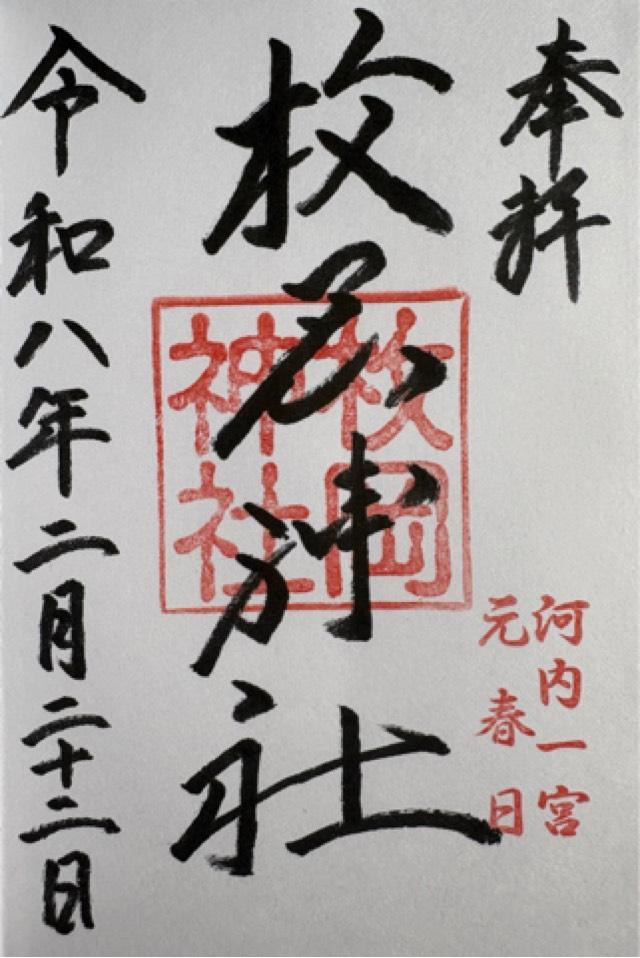 奉拝
河内一宮
元春日
枚岡神社
枚岡
神社
令和八年二月二十二日